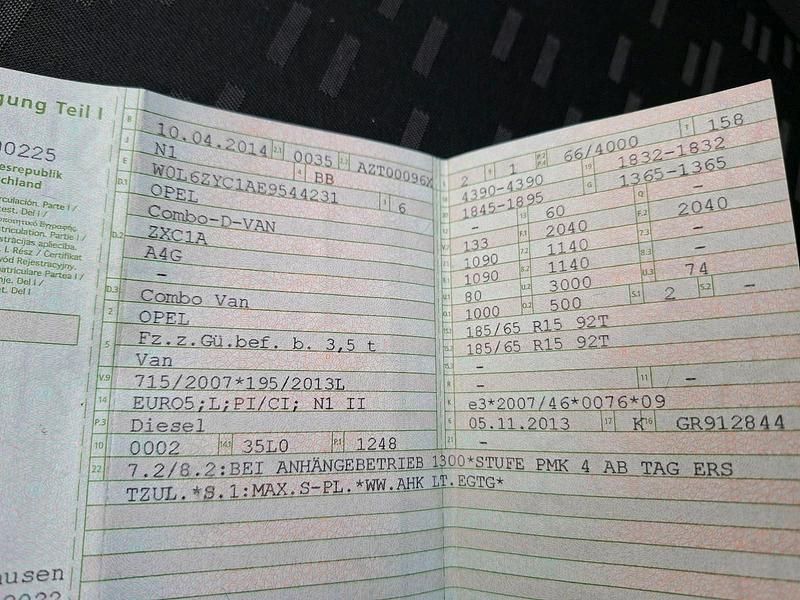 gung Teil I
00225
esrepublik
chland
B 10.04.2014 2.1 0035 2.2 AZT00096X
J N1 4 BB
E W0L6ZYC1AE9544231 3 6
D.1 OPEL
Combo-D-VAN
D.2 ZXC1A
A4G
–
D.3 Combo Van
2 OPEL
5 Fz.z.Gü.bef. b. 3,5 t
Van
V.9 715/2007*195/2013L
14 EURO5;L;PI/CI; N1 II
P.3 Diesel
10 0002 14.1 35L0 P.1 1248
L 2 9 1 P.2 P.4 66/4000 T 158
18 4390-4390 19 1832-1832
20 1845-1895 G 1365-1365
– 13 60 Q –
133 F.1 2040 F.2 2040
1090 7.2 1140 7.3 –
1090 8.2 1140 8.3 –
U.1 80 U.2 3000 U.3 74
O.1 1000 O.2 500 S.1 2 S.2 –
15.1 185/65 R15 92T
15.2 185/65 R15 92T
15.3 –
R – 11 –
K e3*2007/46*0076*09
6 05.11.2013 17 K 16 GR912844
21 –
22 7.2/8.2:BEI ANHÄNGEBETRIEB 1300*STUFE PMK 4 AB TAG ERS
TZUL.*S.1:MAX.S-PL.*WW.AHK LT.EGTG*
ausen